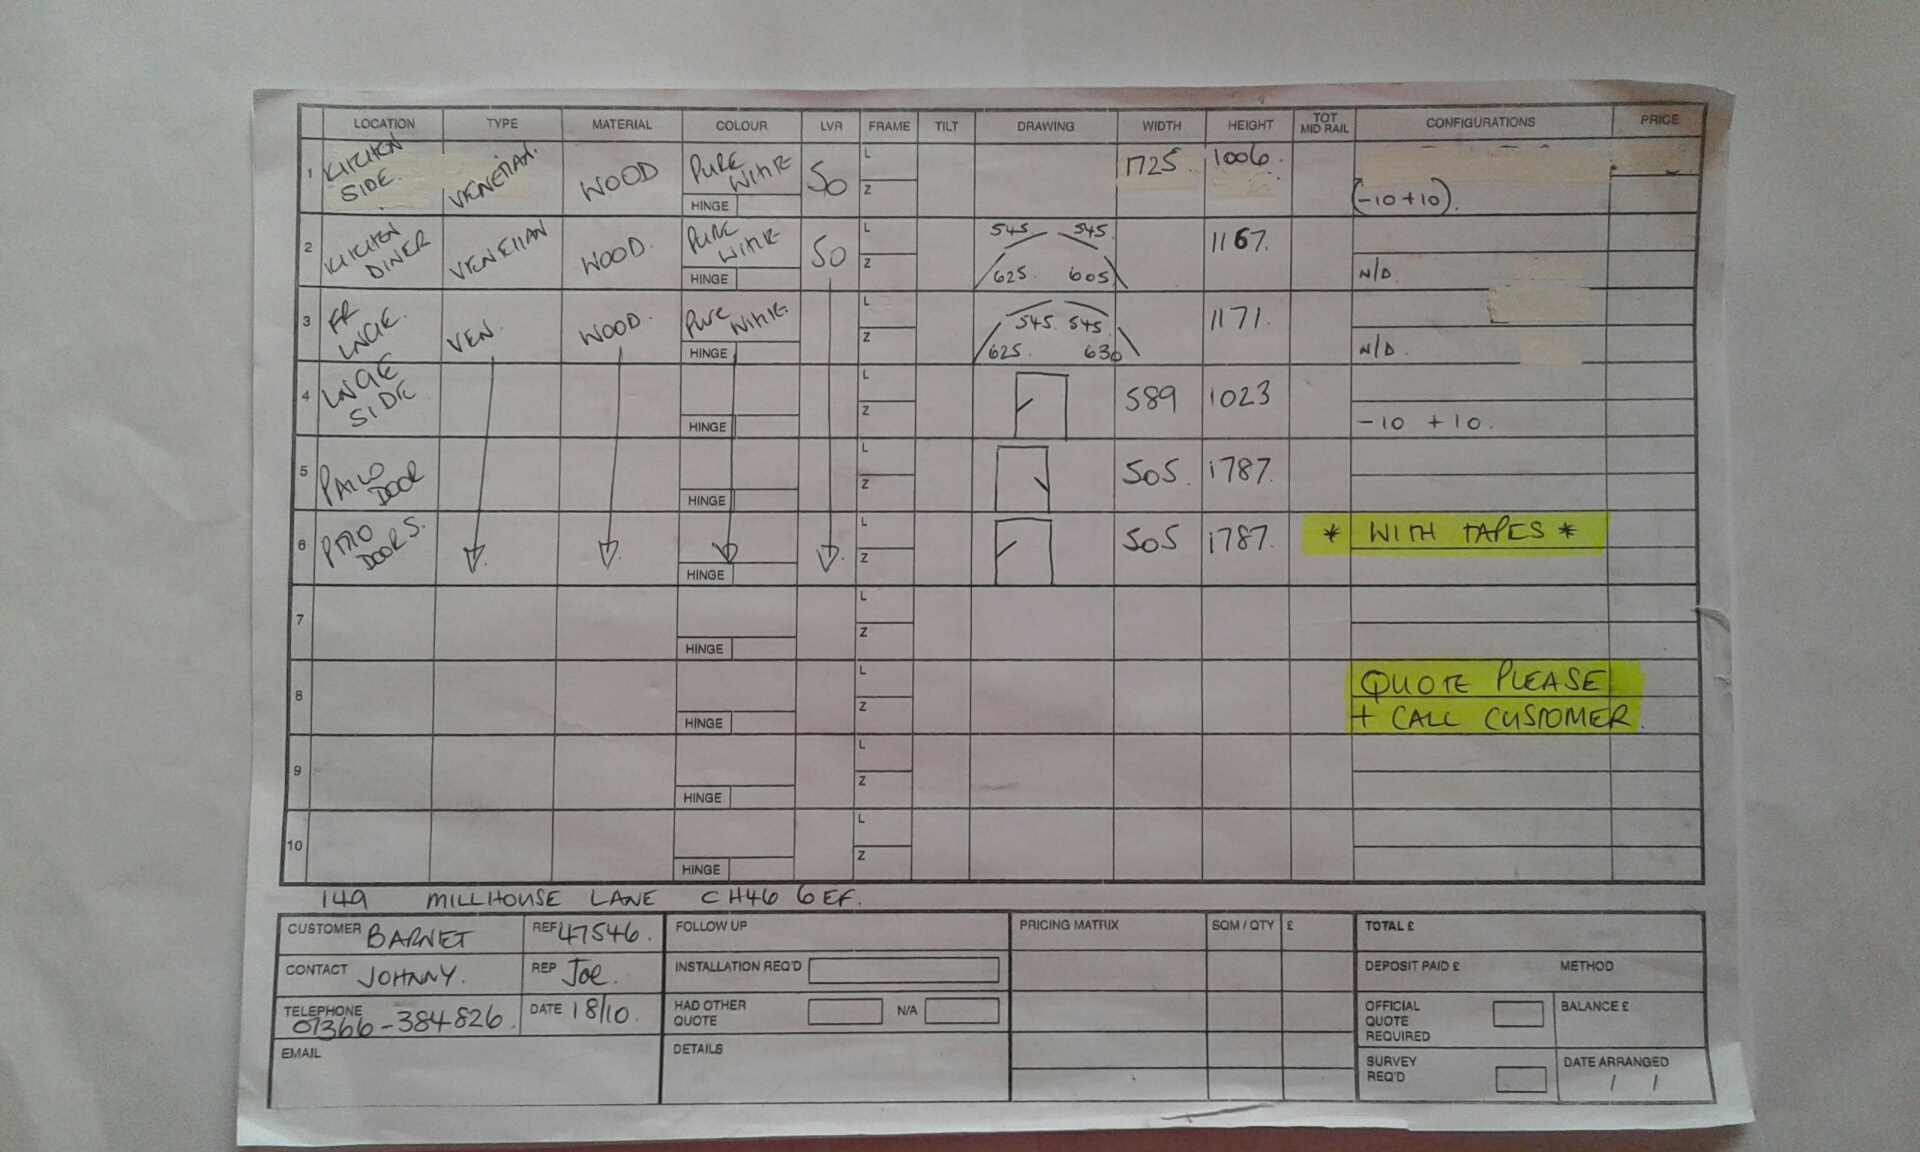 LOCATION TYPE MATERIAL COLOUR LVR FRAME TILT DRAWING WIDTH HEIGHT TOT MID RAIL CONFIGURATIONS PRICE
1 KITCHEN SIDE. VENETIAN. WOOD PURE WHITE HINGE 50 L Z 1725 1006. (-10+10).
2 KITCHEN DINER VENETIAN WOOD. PURE WHITE HINGE 50 L Z 545. 545. 625. 605. 1167. N/D.
3 FR LNGE. VEN. WOOD. PURE WHITE HINGE L Z 545. 545. 625. 630 1171. N/D.
4 LNGE SIDE HINGE L Z 589 1023 -10 +10.
5 PATIO DOOR HINGE L Z 505. 1787.
6 PATIO DOORS. HINGE L Z 505 1787. * WITH TAPES *
7 HINGE L Z
8 HINGE L Z QUOTE PLEASE
+ CALL CUSTOMER.
9 HINGE L Z
10 HINGE L Z
149 MILLHOUSE LANE CH46 6EF.
CUSTOMER BARNET REF 47546. FOLLOW UP PRICING MATRIX SQM / QTY £ TOTAL £
CONTACT JOHNNY. REP Joe. INSTALLATION REQ'D DEPOSIT PAID £ METHOD
TELEPHONE 07366-384826. DATE 18/10. HAD OTHER QUOTE N/A OFFICIAL QUOTE REQUIRED BALANCE £
EMAIL DETAILS SURVEY REQ'D DATE ARRANGED / /